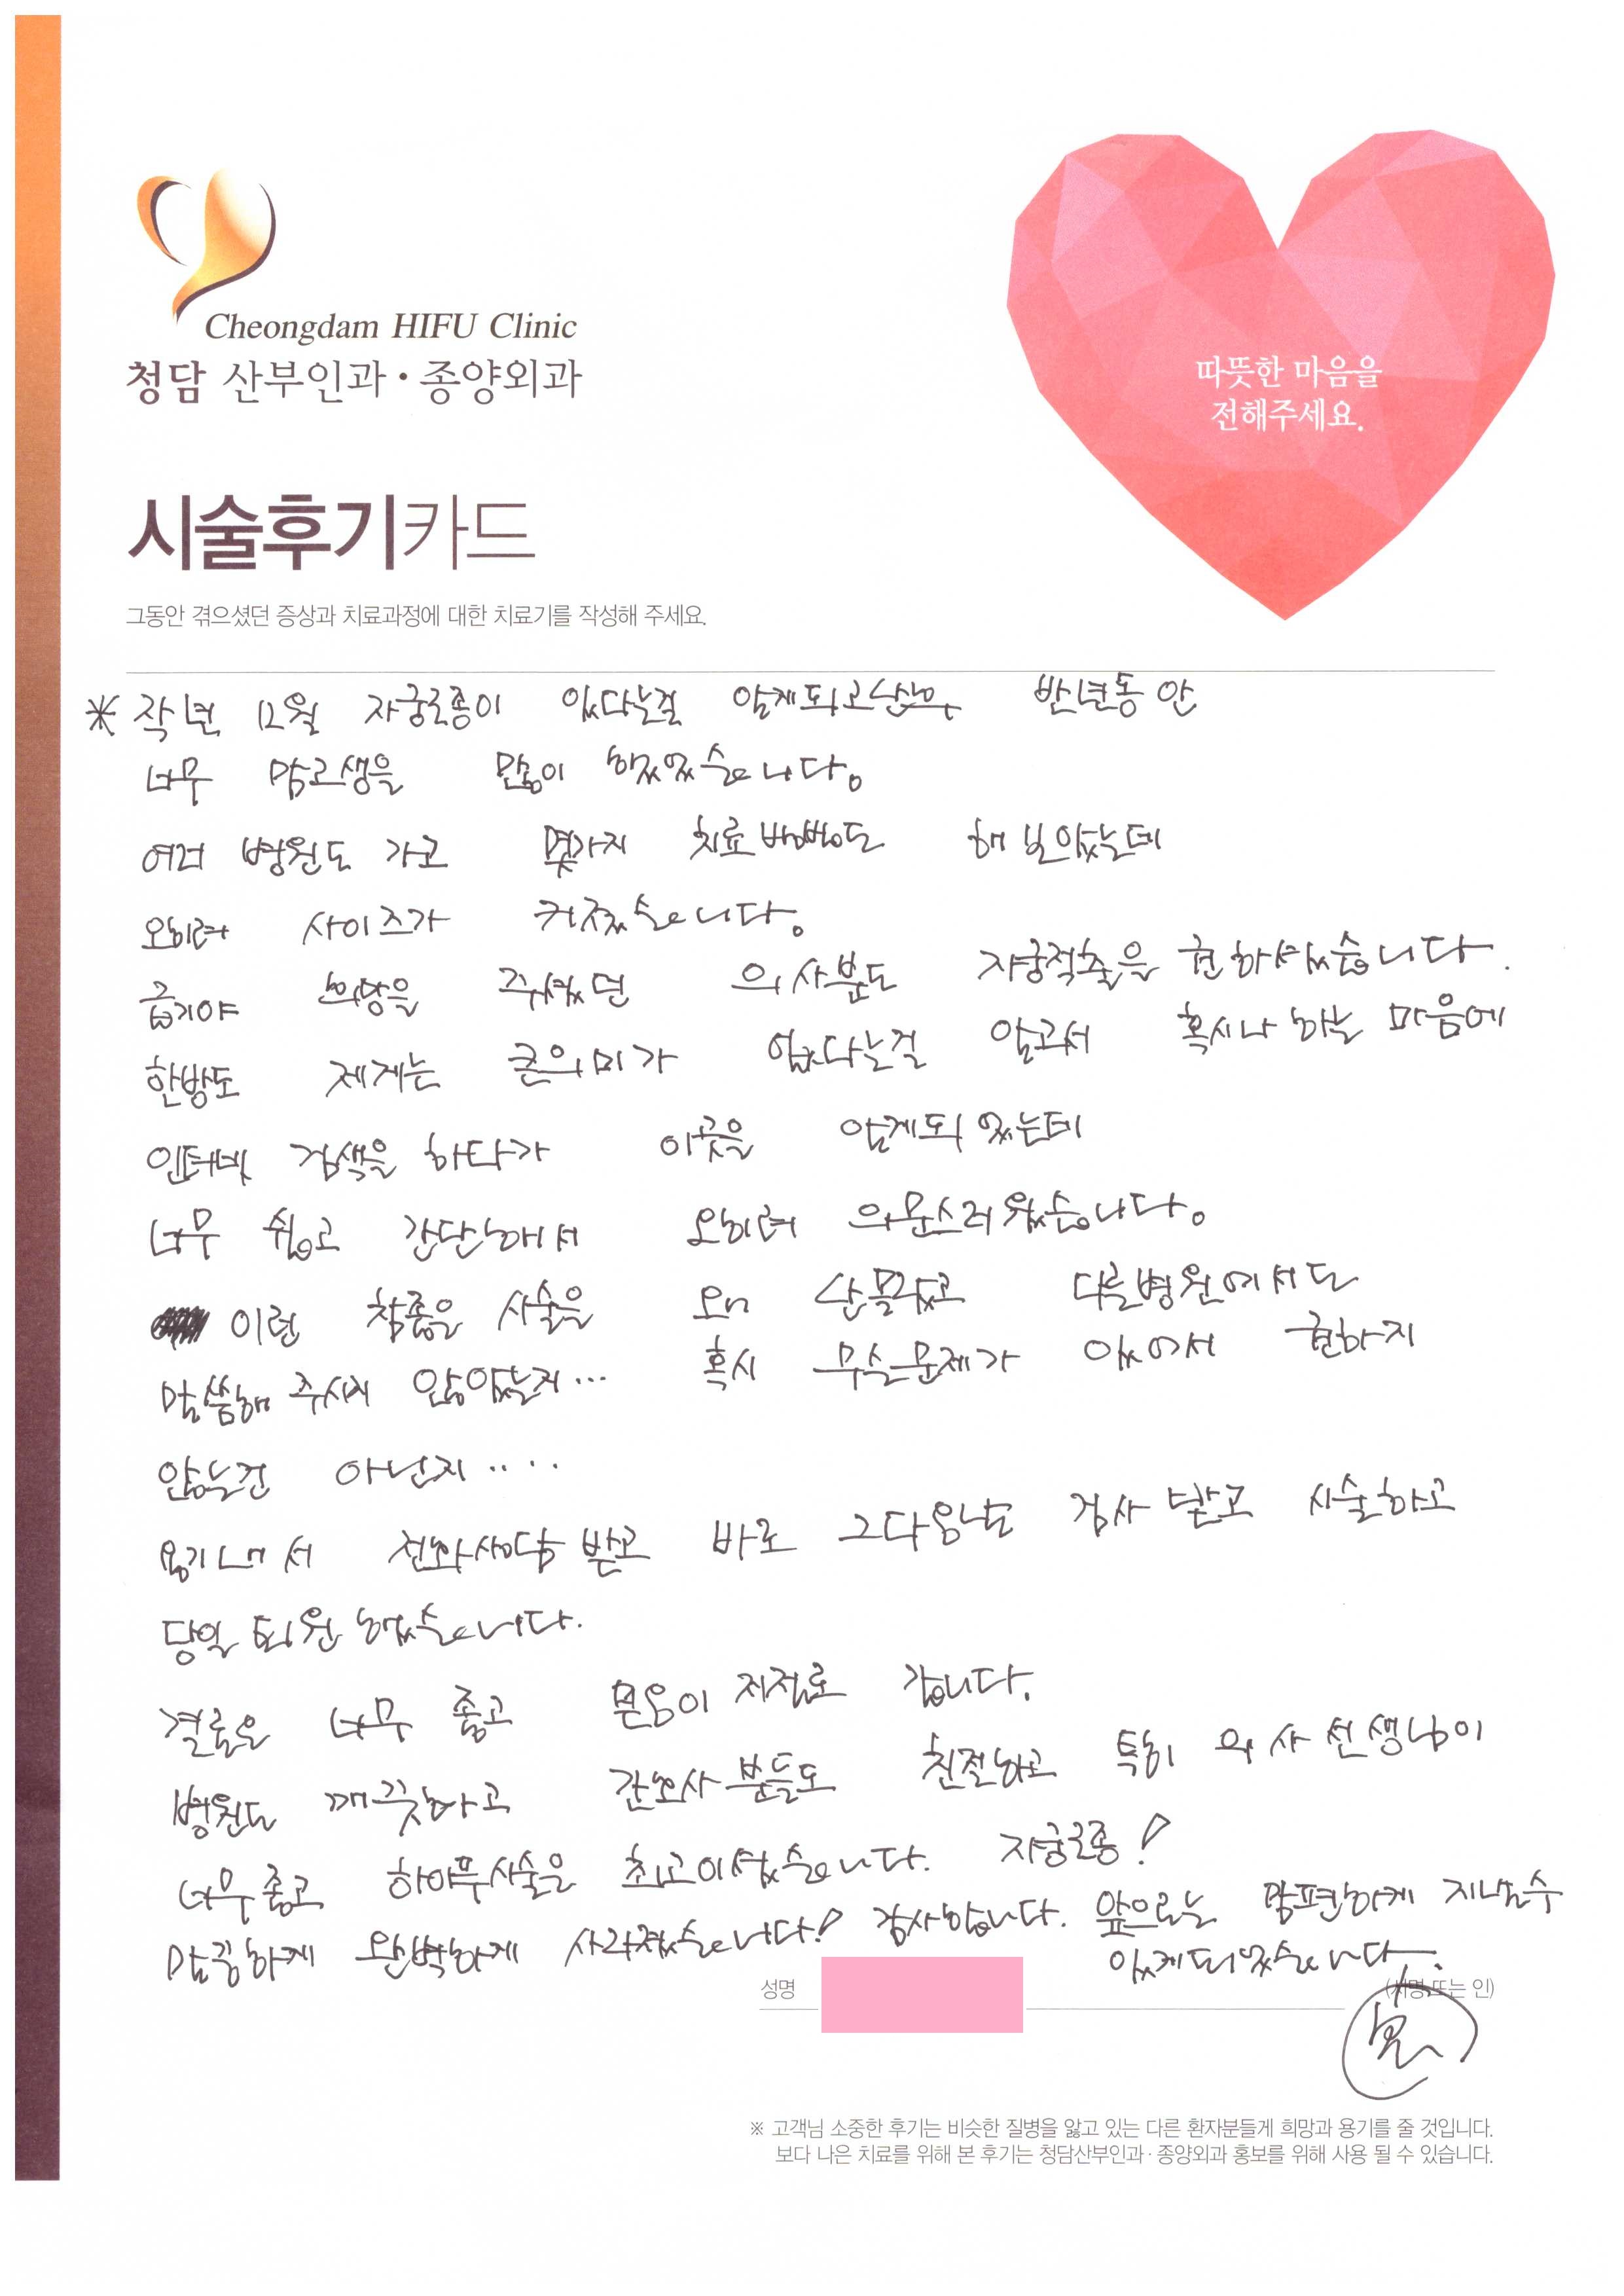 Cheongdam HIFU Clinic
청담 산부인과·종양외과
따뜻한 마음을
전해주세요.
시술후기카드
그동안 겪으셨던 증상과 치료과정에 대한 치료기를 작성해 주세요.
* 작년 12월 자궁근종이 있다는걸 알게되고 반년동안
너무 맘고생을 많이 했었습니다.
여러 병원도 가고 몇가지 치료방법도 해보았는데
오히려 사이즈가 커졌습니다.
급기야 희망을 주셨던 의사분도 자궁적출을 권하셨습니다.
한방도 제게는 큰의미가 없다는걸 알고서 혹시나 하는 마음에
인터넷 검색을 하다가 이곳을 알게되었는데
너무 쉽고 간단해서 오히려 의문스러웠습니다.
이런 참좋은 시술을 왜 몰랐고 다른병원에서도
말씀해 주시지 않았는지... 혹시 무슨문제가 있어서 권하지
않는건 아닌지....
용기내서 전화상담 받고 바로 그다음날 검사 받고 시술하고
당일 퇴원 했습니다.
결론은 너무 좋고 믿음이 저절로 갑니다.
병원도 깨끗하고 간호사분들도 친절하고 특히 의사선생님이
너무좋고 하이푸시술은 최고이셨습니다. 자궁근종!
말끔하게 완벽하게 사라졌습니다! 감사합니다. 앞으로는 맘편하게 지낼수
있게되었습니다.
성명 (서명 또는 인)
※ 고객님 소중한 후기는 비슷한 질병을 앓고 있는 다른 환자분들게 희망과 용기를 줄 것입니다.
보다 나은 치료를 위해 본 후기는 청담산부인과·종양외과 홍보를 위해 사용 될 수 있습니다.